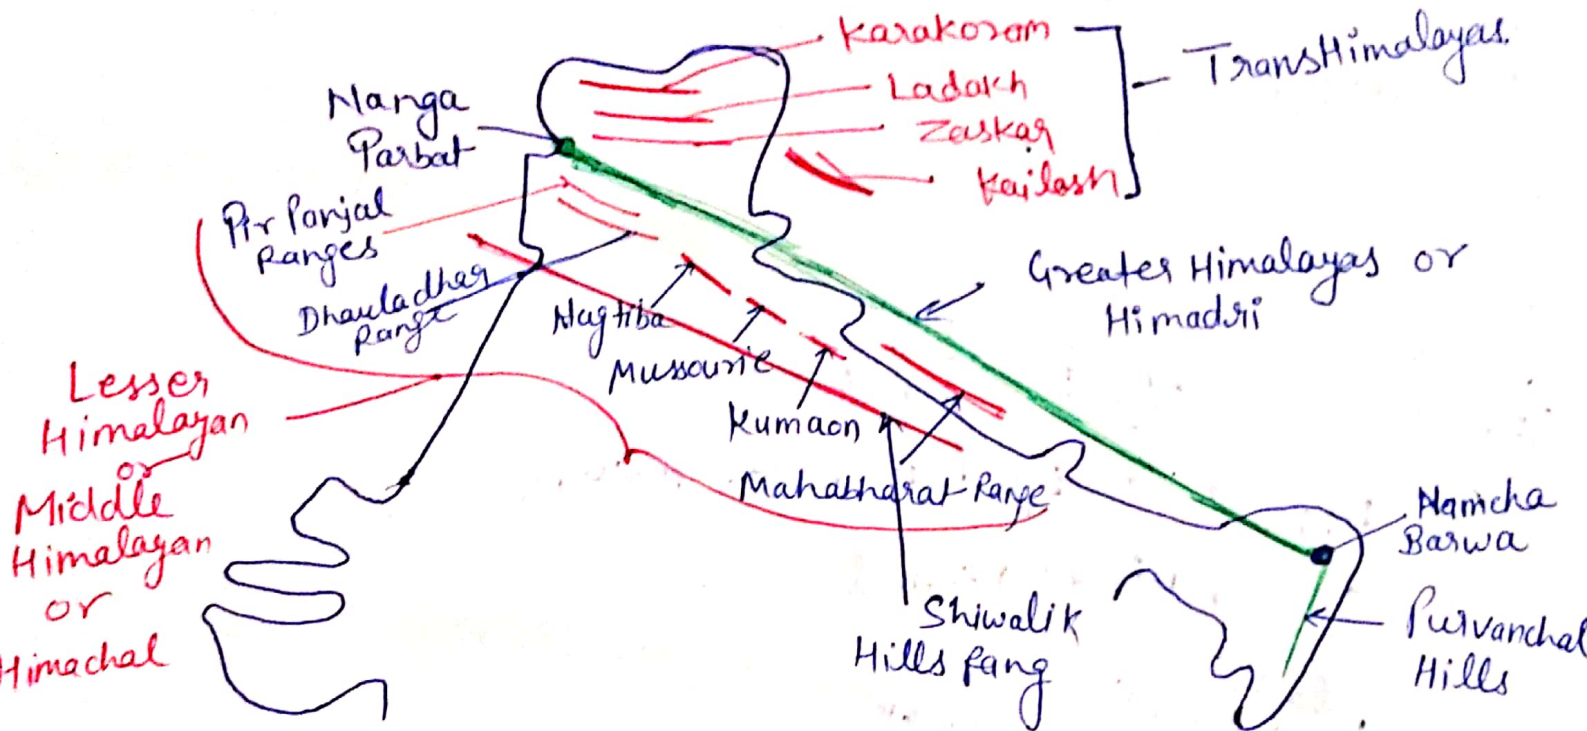 Karakoram
Ladakh
Zaskar
Kailash
TransHimalayas.
Nanga
Parbat
Pir Panjal
Ranges
Dhauladhar
Range
Nagtiba
Mussourie
Kumaon
Mahabharat Range
Greater Himalayas or
Himadri
Lesser
Himalayan
or
Middle
Himalayan
or
Himachal
Shiwalik
Hills Rang
Namcha
Barwa
Purvanchal
Hills